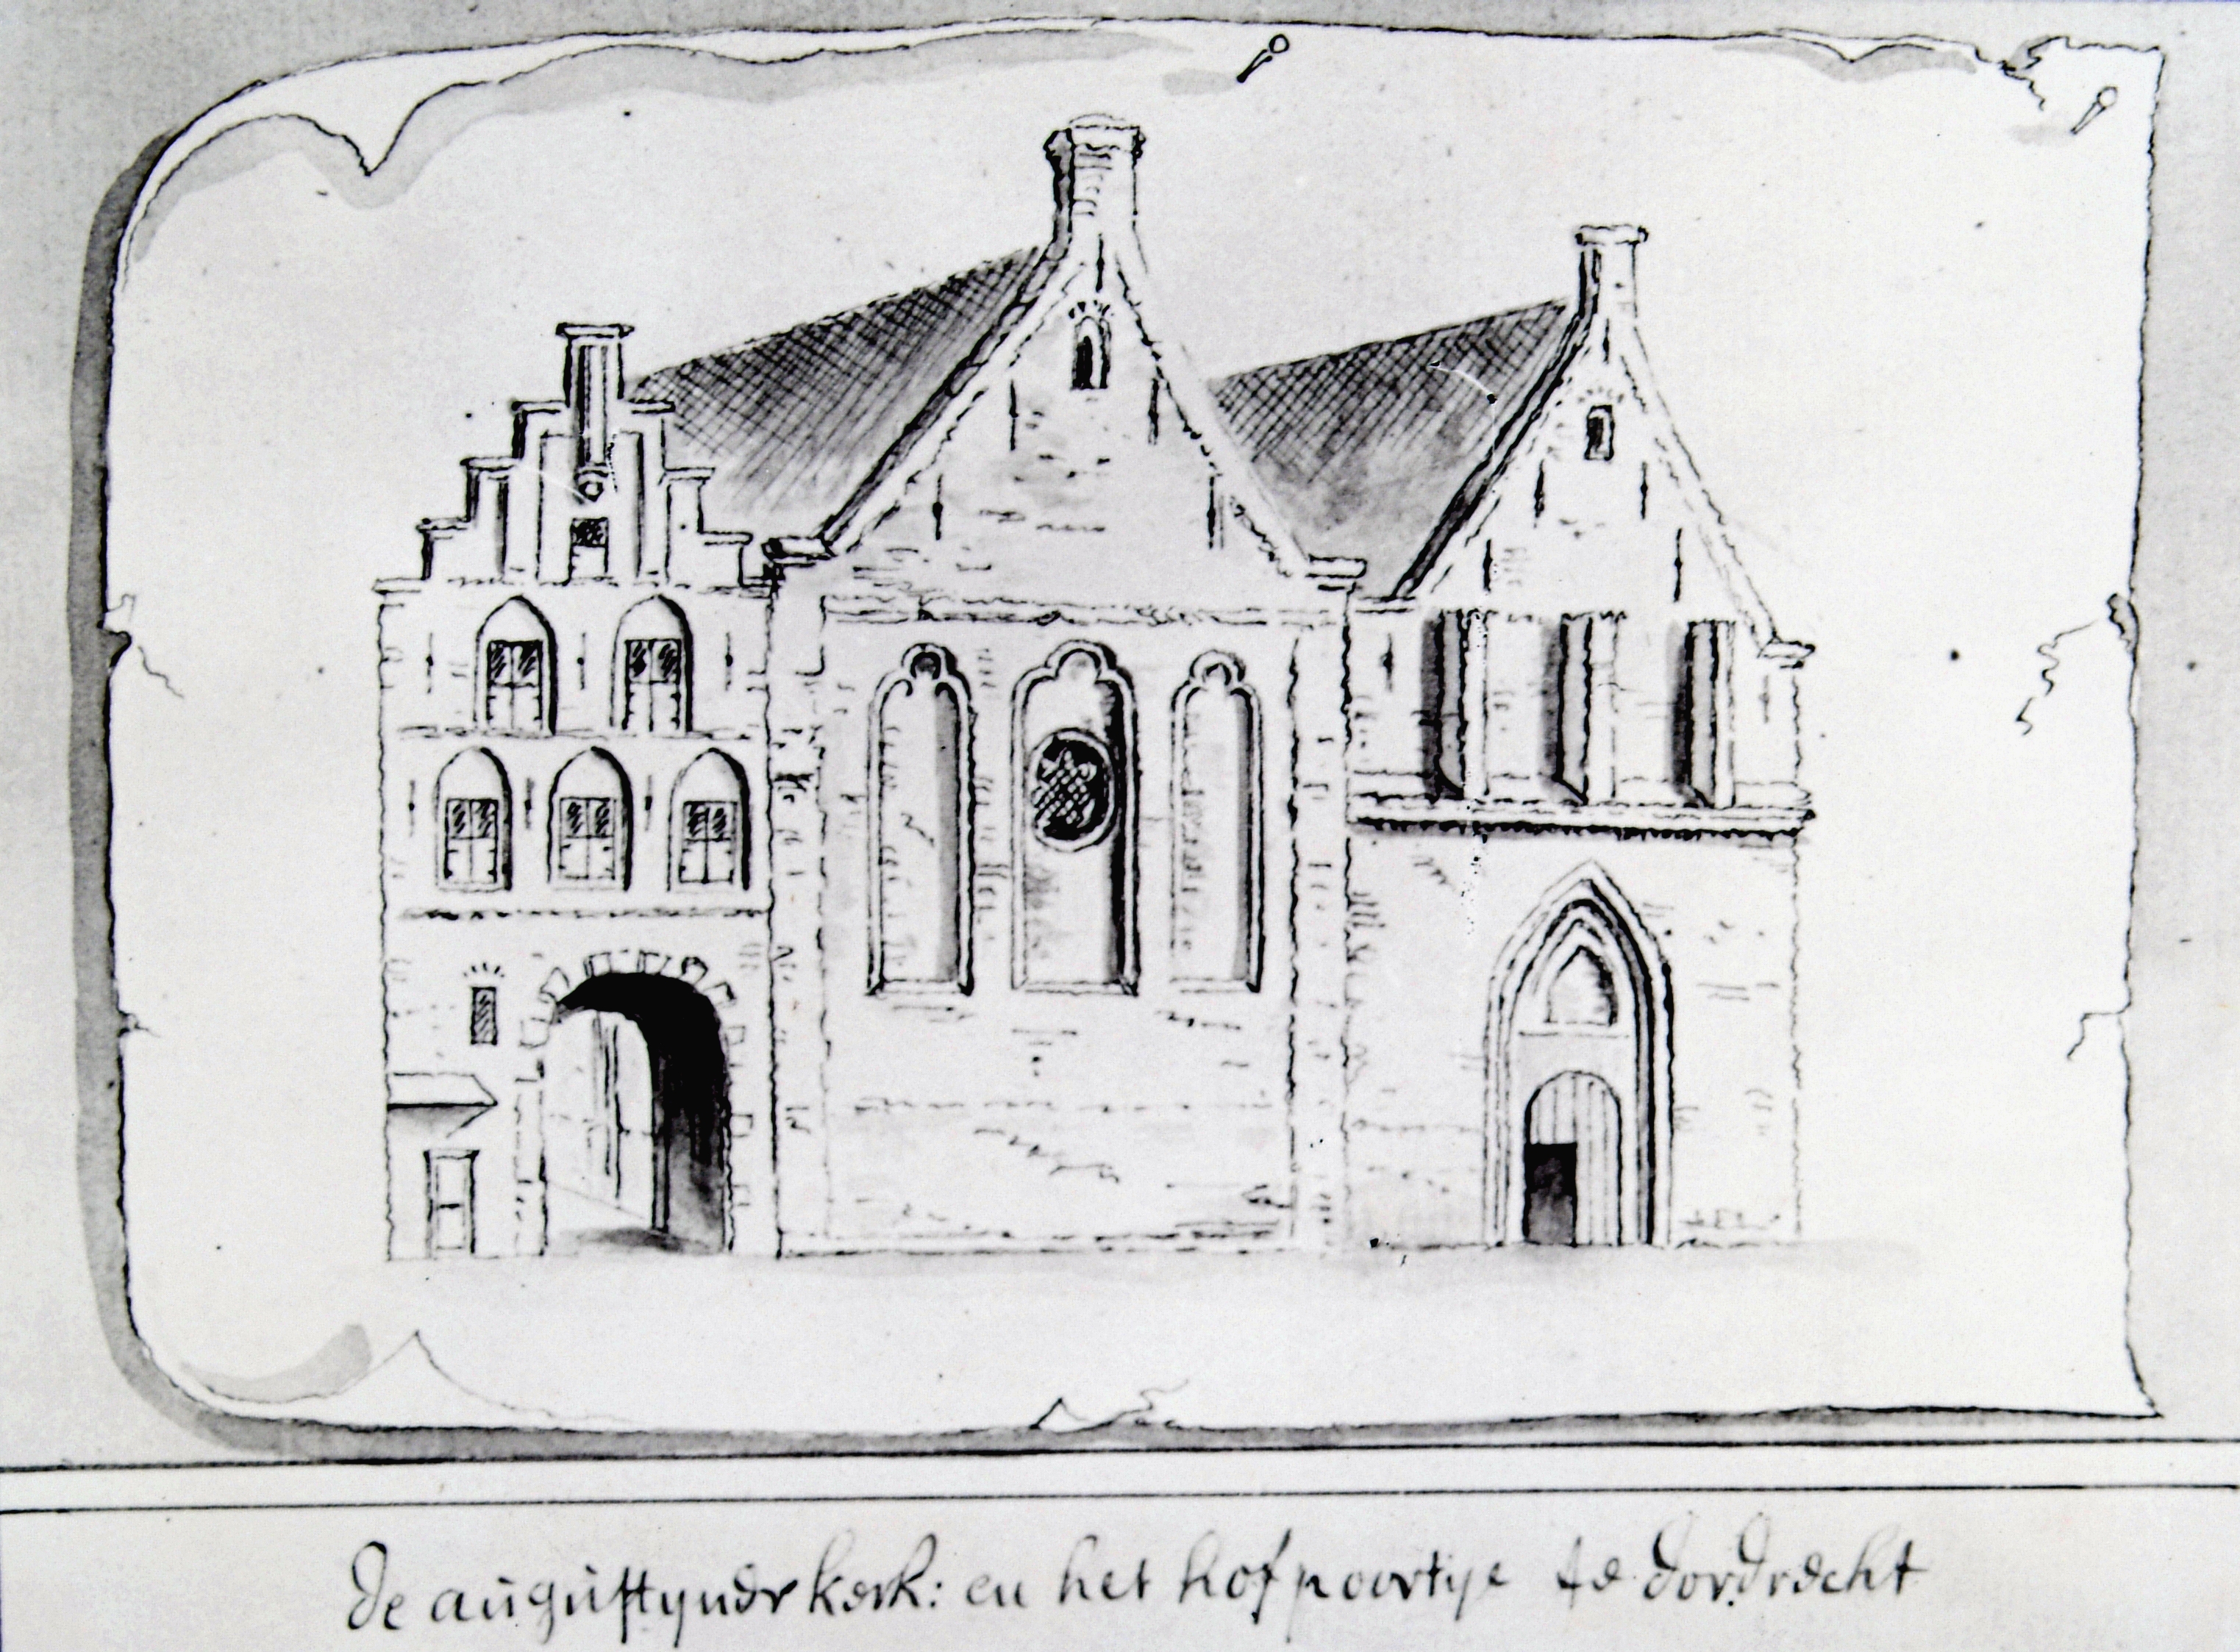 de augustyner kerk: en het hofpoortije te dordrecht